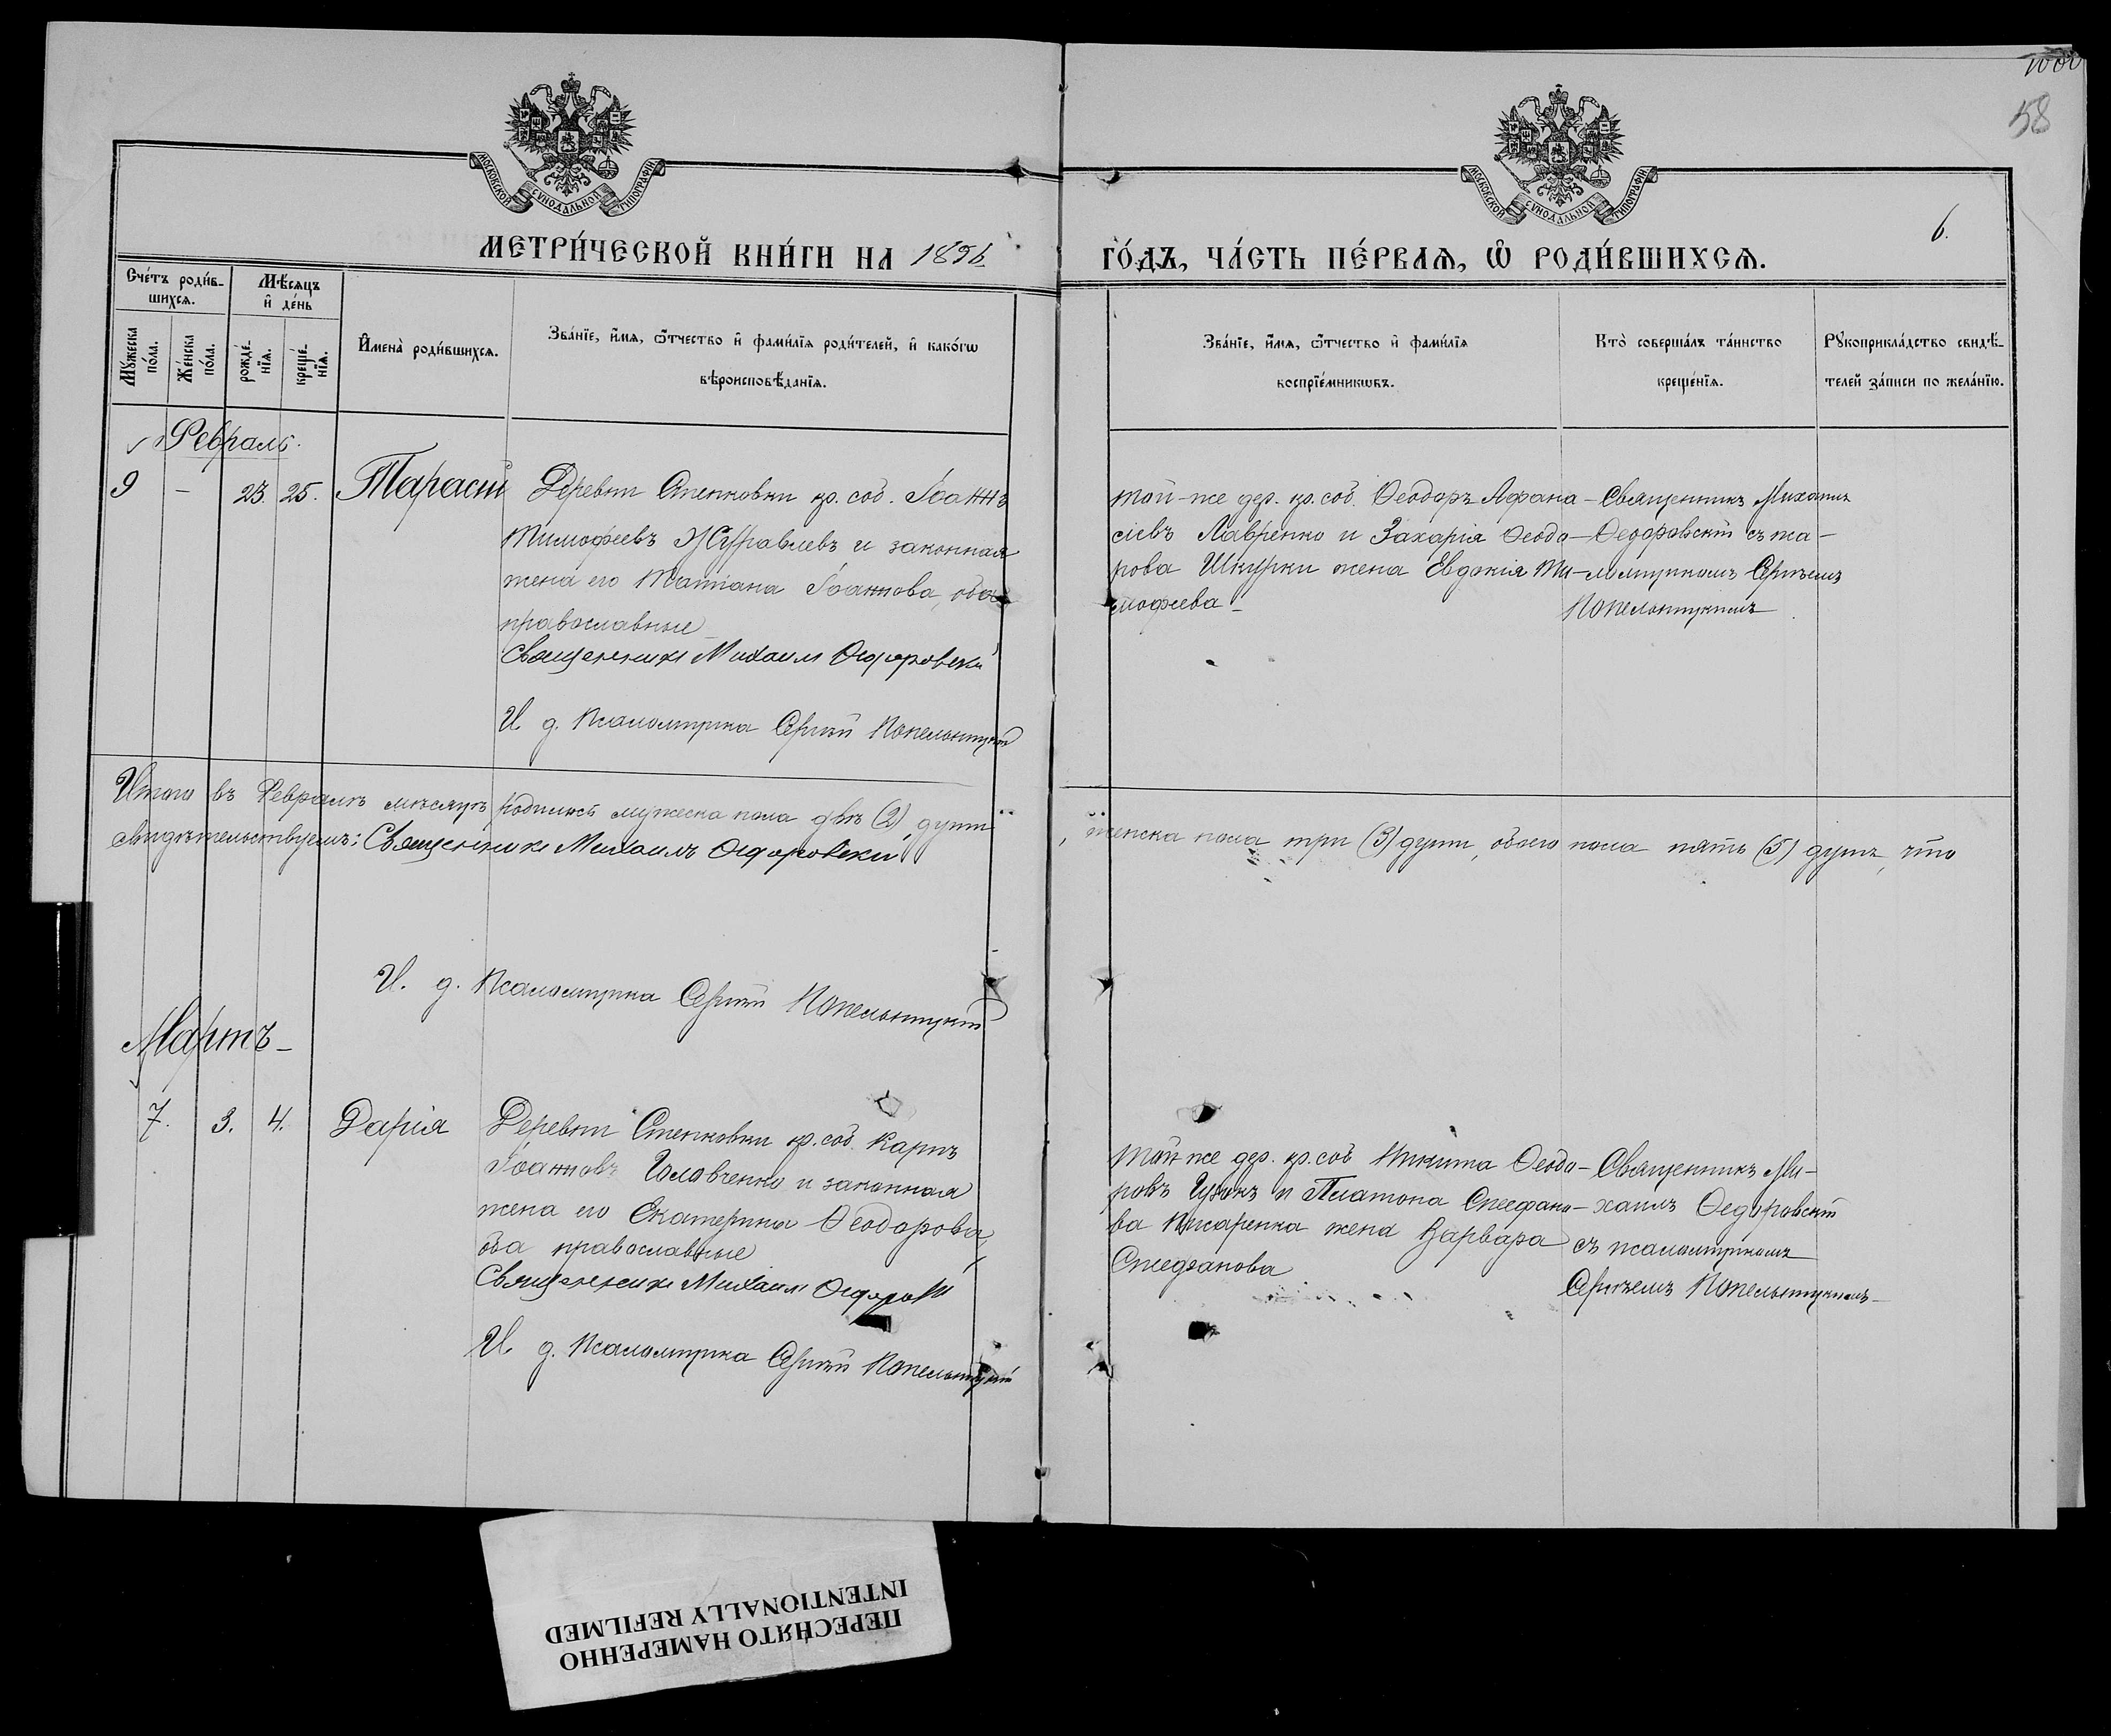 1000
58
МОСКОВСКОЙ СѴНОДАЛЬНОЙ ТИПОГРАФІИ
МОСКОВСКОЙ СѴНОДАЛЬНОЙ ТИПОГРАФІИ
6.
МЕТРИ́ЧЕСКОЙ КНИ́ГИ НА 1896
ГО́ДЪ, ЧА́СТЬ ПЕ́РВАѦ, Ѡ РОДИ́ВШИХСѦ.
Сче́тъ роди́в-
шихсѧ.
Мѣ́сѧцъ
и҆ де́нь
Мꙋ́жеска
по́ла.
Же́нска
по́ла.
рожде́-
нїѧ.
креще́-
нїѧ.
И҆мена̀ роди́вшихсѧ.
Зва́нїе, и҆́мѧ, ѻ҆́тчество и҆ фами́лїѧ роди́телей, и҆ како́гѡ
вѣроисповѣ́данїѧ.
Зва́нїе, и҆́мѧ, ѻ҆́тчество и҆ фами́лїѧ
воспрїе́мникѡвъ.
Кто̀ соверша́лъ та́инство
креще́нїѧ.
Рꙋкоприкла́дство свидѣ́-
телей за́писи по жела́нїю.
Февраль.
9 – 23. 25. Тарасій
Деревни Степковки кр. соб. Іоаннъ
Тимофеевъ Журавлевъ и законная
жена его Татіана Іоаннова, оба
православные
Священникъ Михаилъ Ѳедоровскій
И. д. Псаломщика Сергѣй Попельницкій
Той-же дер. кр. соб. Ѳеодоръ Афана-
сіевъ Лавренко и Захарія Ѳеодо-
рова Шкурки жена Евдокія Ти-
мофеева
Священникъ Михаилъ
Ѳедоровскій съ пса-
ломщикомъ Сергѣемъ
Попельницкимъ
Итого въ Февралѣ мѣсяцѣ родилось мужеска пола двѣ (2) души, женска пола три (3) души, обоего пола пять (5) душъ, что
свидѣтельствуемъ: Священникъ Михаилъ Ѳедоровскій
И. д. Псаломщика Сергѣй Попельницкій
Мартъ
7. 3. 4. Дарія
Деревни Степковки кр. соб. Карпъ
Іоанновъ Головченко и законная
жена его Екатерина Ѳеодорова,
оба православные
Священникъ Михаилъ
И. д. Псаломщика Сергѣй Попельницкій
Той-же дер. кр. соб. Никита Ѳеодо-
ровъ и Платона Стефано-
ва Писаренка жена Варвара
Стефанова
Священникъ Ми-
хаилъ Ѳедоровскій
съ псаломщикомъ
Сергѣемъ Попельницкимъ
ПЕРЕСНЯТО НАМЕРЕННО
INTENTIONALLY REFILMED